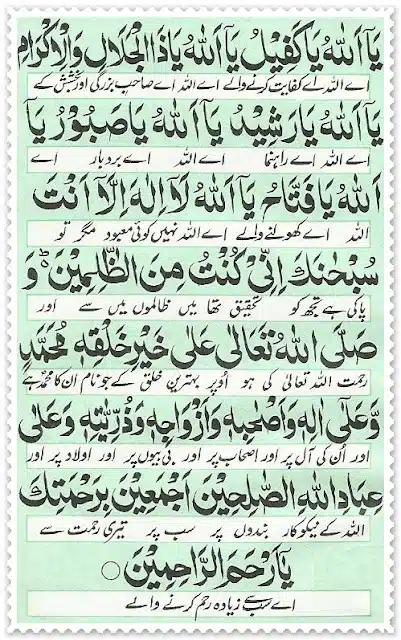 يَآ اَللهُ يَا كَفِيْلُ يَآ اَللهُ يَا ذَا الْجَلَالِ وَالْاِكْرَامِ
اے اللہ اے کفایت کرنے والے اے اللہ اے صاحب بزرگی اور بخشش کے
يَآ اَللهُ يَا رَشِيْدُ يَآ اَللهُ يَا صَبُوْرُ يَآ
اے اللہ اے راہنما اے اللہ اے بردبار اے
اَللهُ يَا فَتَّاحُ يَآ اَللهُ لَآ اِلٰهَ اِلَّآ اَنْتَ
اللہ اے کھولنے والے اے اللہ نہیں کوئی معبود مگر تو
سُبْحٰنَكَ اِنِّىْ كُنْتُ مِنَ الظّٰلِمِيْنَ ؕ وَ
پاکی ہے تجھ کو تحقیق تھا میں ظالموں میں سے اور
صَلَّى اللهُ تَعَالٰى عَلٰى خَيْرِ خَلْقِهٖ مُحَمَّدٍ
رحمت اللہ تعالٰی کی ہو اُوپر بہترین خلق کے جو نام ان کا محمدؐ ہے
وَّعَلٰٓى اٰلِهٖ وَاَصْحٰبِهٖ وَاَزْوَاجِهٖ وَذُرِّيّٰتِهٖ وَعَلٰى
اور اُن کی آل پر اور اصحاب پر اور بی بیوں پر اور اولاد پر اور
عِبَادِ اللهِ الصّٰلِحِيْنَ اَجْمَعِيْنَ بِرَحْمَتِكَ
اللہ کے نیکو کار بندوں پر سب پر تیری رحمت سے
يَآ اَرْحَمَ الرَّاحِمِيْنَ ○
اے سب سے زیادہ رحم کرنے والے